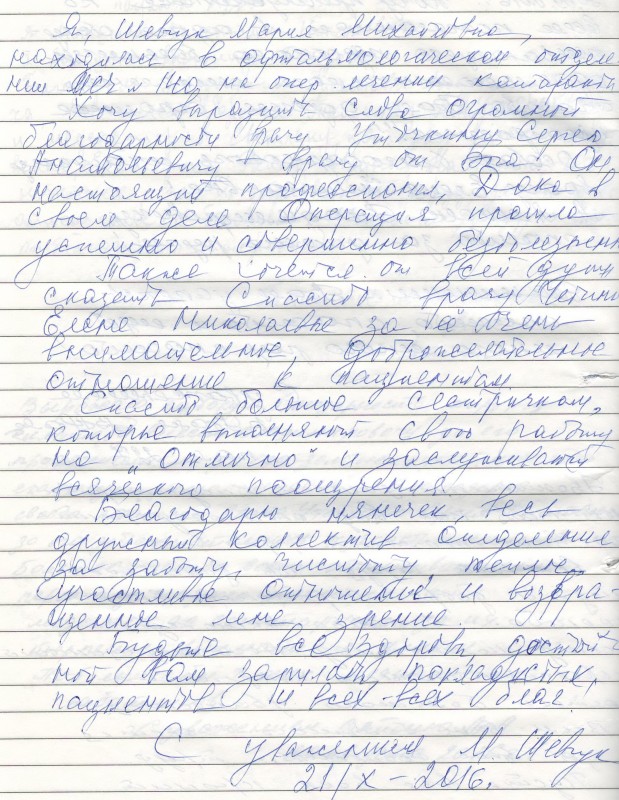 Я, Шевчук Мария Михайловна,
находилась в офтальмологическом отделе
нии МСЧ № 140 на опер. лечении катаракты
Хочу выразить слова огромной
благодарности врачу Сергею
Анатольевичу - врачу от Бога Он
настоящий профессионал, Дока в
своем деле Операция прошла
успешно и совершенно безболезненн
Также хочется от всей души
сказать Спасибо врачу
Елене Николаевне за её очень
внимательное, доброжелательное
отношение к пациентам.
Спасибо большое сестричкам,
которые выполняют свою работу
на „отлично" и заслуживают
всяческого поощрения
Благодарю нянечек, весь
дружный коллектив отделение
за заботу, чистоту теплое,
участливое отношение и возвра-
щенное мне зрение.
Будьте все здоровы, достой
ной вам зарплаты, покладистых
пациентов и всех-всех благ!
С уважением М. Шевчук
21/X-2016г.